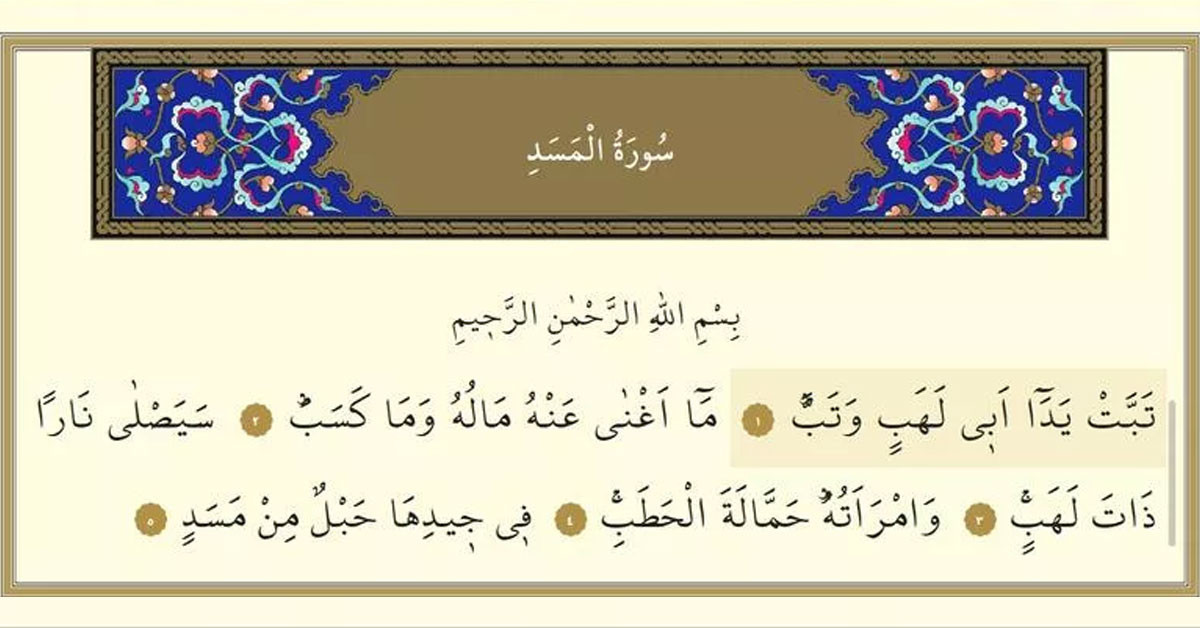 سُورَةُ الْمَسَدِ
بِسْمِ اللهِ الرَّحْمٰنِ الرَّحٖيمِ
تَبَّتْ يَدَٓا اَبٖى لَهَبٍ وَتَبَّۜ ١ مَٓا اَغْنٰى عَنْهُ مَالُهُ وَمَا كَسَبَۜ ٢ سَيَصْلٰى نَارًا
ذَاتَ لَهَبٍۚ ٣ وَامْرَاَتُهُۜ حَمَّالَةَ الْحَطَبِۚ ٤ فٖى جٖيدِهَا حَبْلٌ مِنْ مَسَدٍ ٥